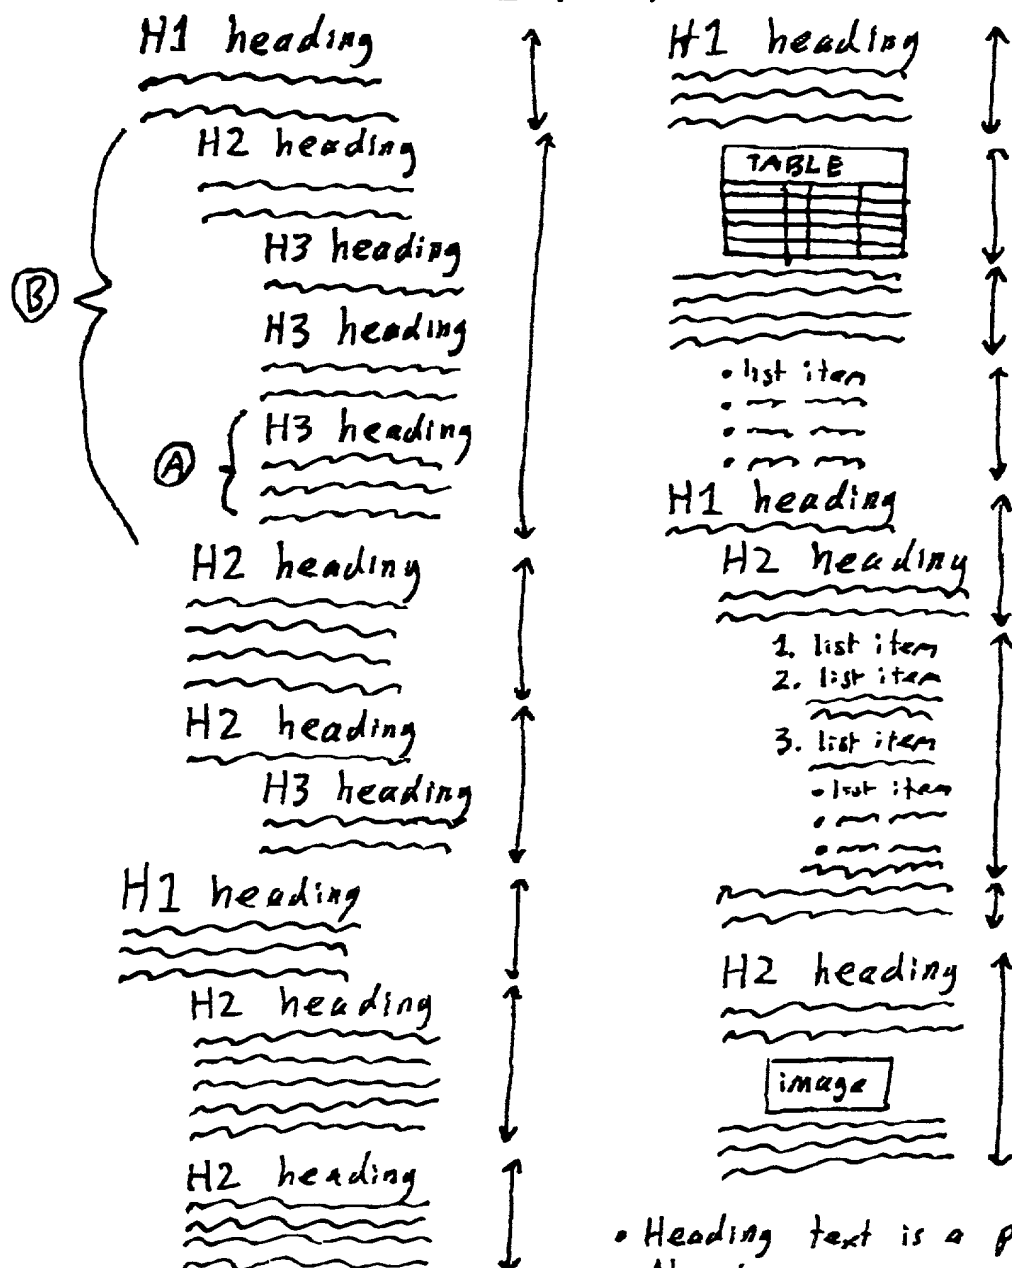 H1 heading
H2 heading
H3 heading
H3 heading
B
A
H3 heading
H2 heading
H2 heading
H3 heading
H1 heading
H2 heading
H2 heading
H1 heading
TABLE
• list item
H1 heading
H2 heading
1. list item
2. list item
3. list item
• list item
H2 heading
image
• Heading text is a